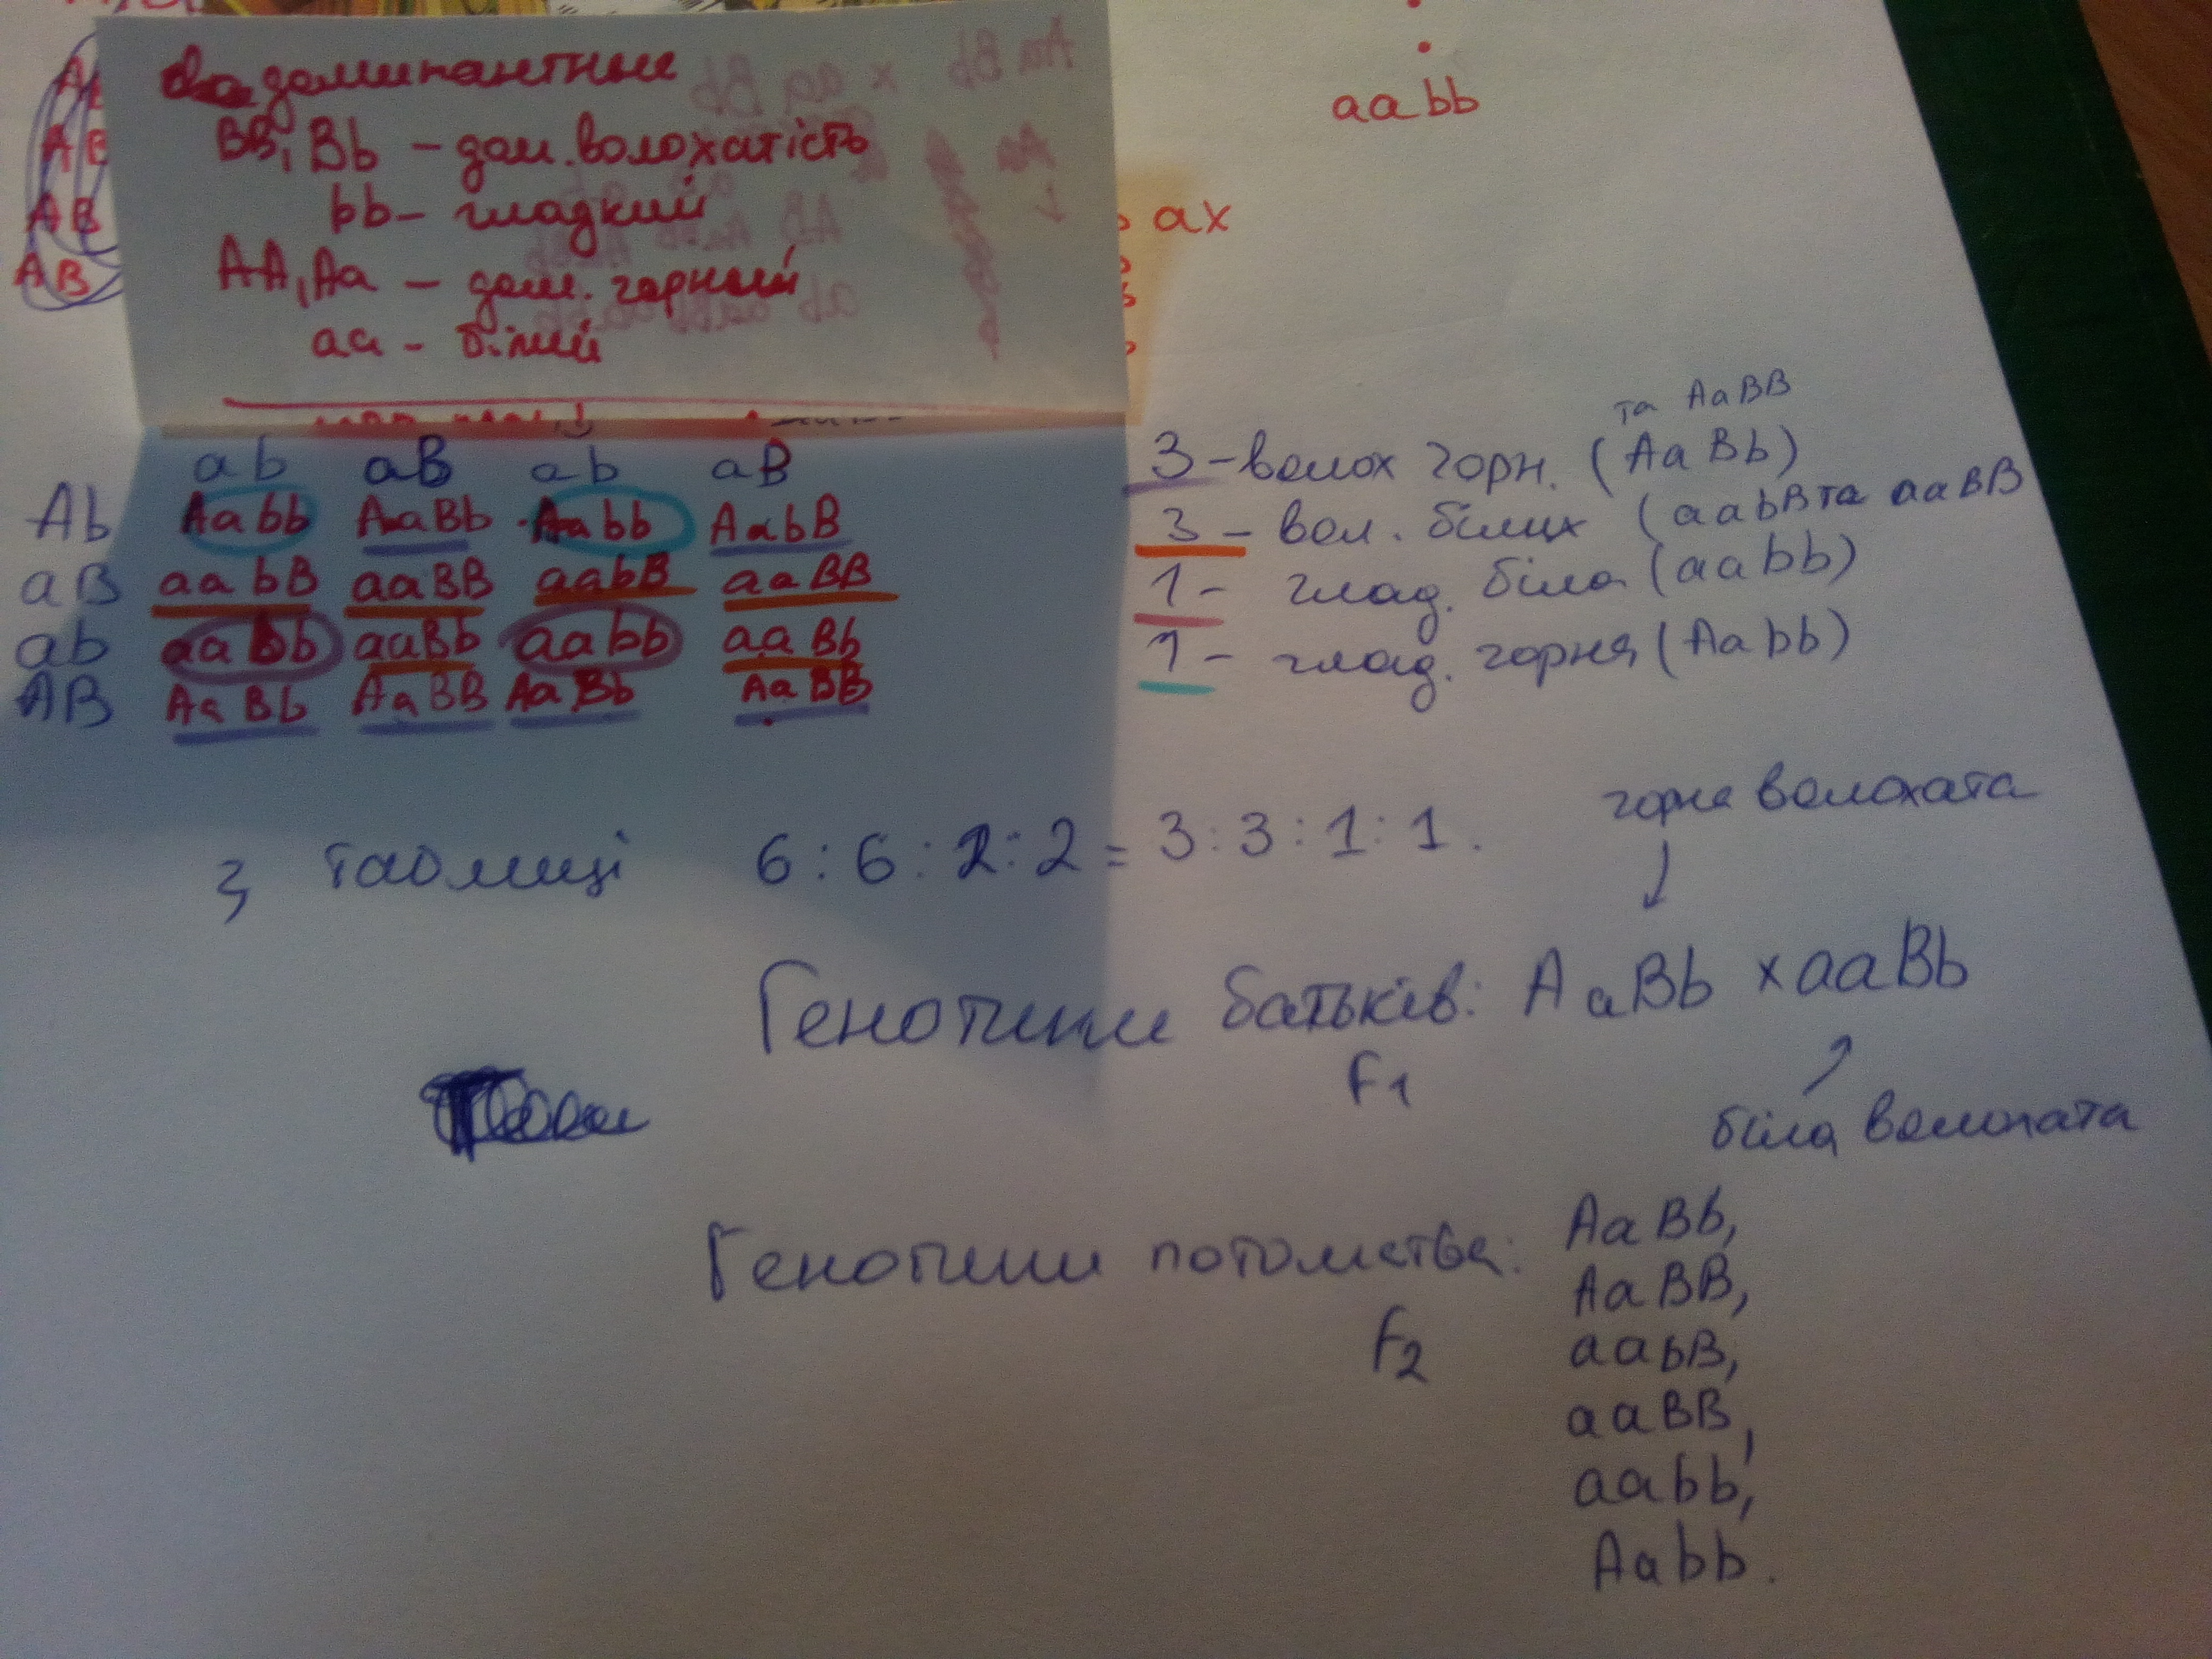 доминантные
BB, Bb – дом. волохатість
bb – гладкий
AA, Aa – дом. горний
aa – білий
aabb
ax
AB
AB
ab aB ab aB
Ab Aabb AaBb Aabb AabB
aB aabB aaBB aabB aaBB
ab aabb aaBb aabb aaBb
AB AaBb AaBB AaBb AaBB
та AaBB
3 – волох горн. (AaBb)
3 – вол. білих (aabB та aaBB
1 – глад. біла (aabb)
1 – глад. горня (Aabb)
З таблиці 6:6:2:2 = 3:3:1:1.
горна волохата
Генотипи батьків: AaBb x aaBb
F1
біла волохата
Генотипи потомства: AaBb,
AaBB,
F2
aabB,
aaBB,
aabb,
Aabb.